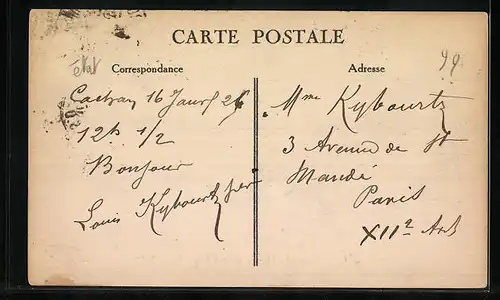 CARTE POSTALE
99
état
Correspondance
Adresse
Cachan 16 Janv 26
12h 1/2
Bonjour
Louis Kybourtz
Mme Kybourtz
3 Avenue de St
Mandé
Paris
XIIe Art